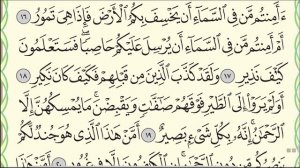 ءَأَمِنتُم مَّن فِى ٱلسَّمَآءِ أَن يَخْسِفَ بِكُمُ ٱلْأَرْضَ فَإِذَا هِىَ تَمُورُ ١٦
أَمْ أَمِنتُم مَّن فِى ٱلسَّمَآءِ أَن يُرْسِلَ عَلَيْكُمْ حَاصِبًا فَسَتَعْلَمُونَ
كَيْفَ نَذِيرِ ١٧ وَلَقَدْ كَذَّبَ ٱلَّذِينَ مِن قَبْلِهِمْ فَكَيْفَ كَانَ نَكِيرِ ١٨
أَوَلَمْ يَرَوْا۟ إِلَى ٱلطَّيْرِ فَوْقَهُمْ صَٰٓفَّٰتٍ وَيَقْبِضْنَ مَا يُمْسِكُهُنَّ إِلَّا
ٱلرَّحْمَٰنُ إِنَّهُۥ بِكُلِّ شَىْءٍۭ بَصِيرٌ ١٩ أَمَّنْ هَٰذَا ٱلَّذِى هُوَ جُندٌ لَّكُمْ